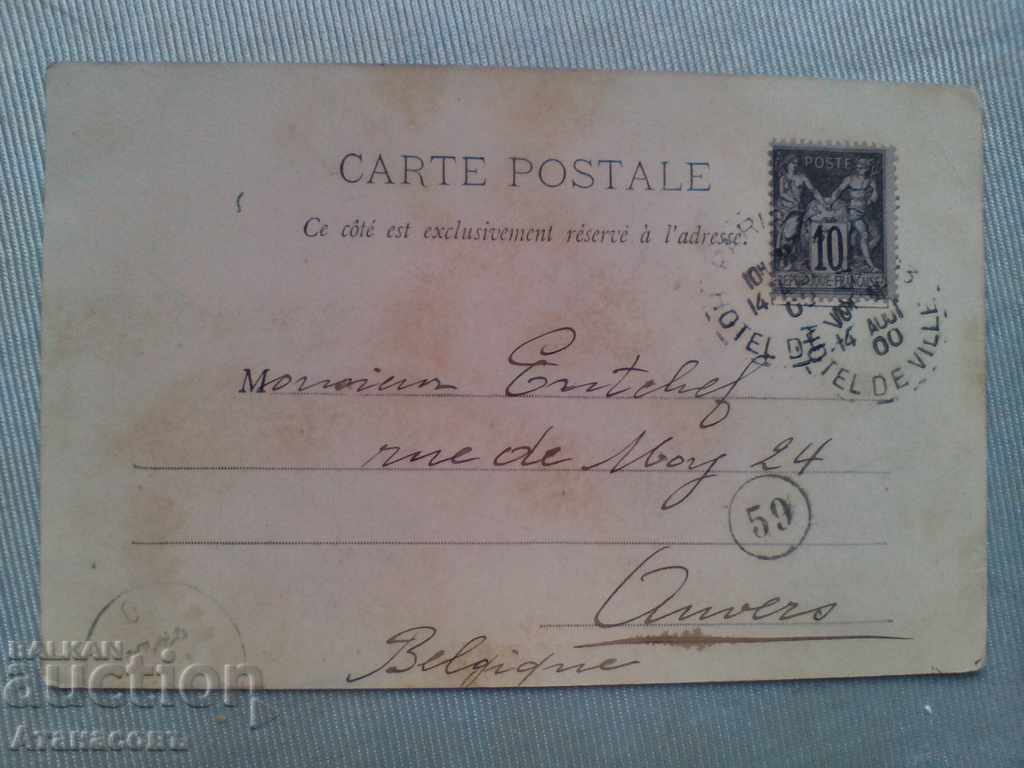 CARTE POSTALE
Ce côté est exclusivement réservé à l'adresse.
POSTE
10
10H
14
14
AOUT
00
HOTEL DE VILLE
Monsieur Entchef
rue de Moy 24
59
Anvers
Belgique
BALKAN
auction
Атанасовъ